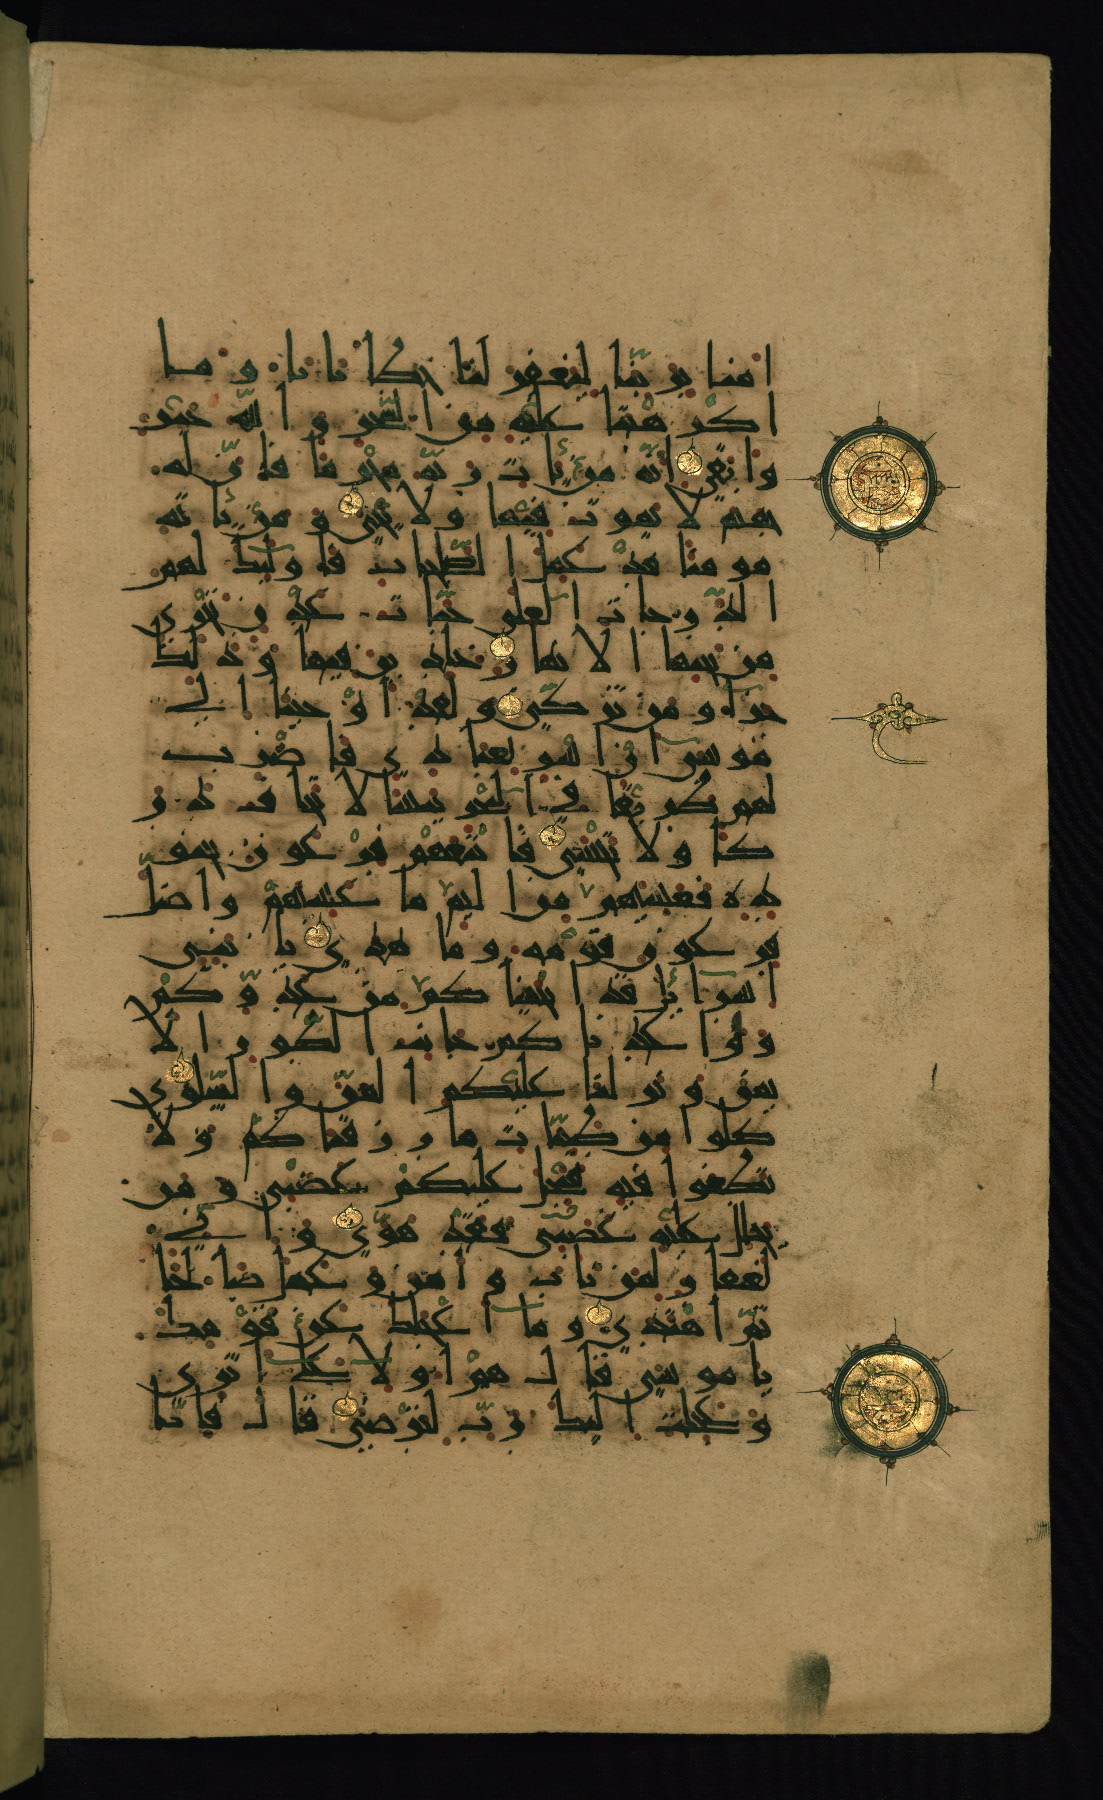 امنا بربنا ليغفر لنا خطايانا وما
اكرهتنا عليه من السحر والله خير
وابقى انه من يات ربه مجرما فان له
جهنم لا يموت فيها ولا يحيى ومن ياته
مومنا قد عمل الصالحات فاولئك لهم
الدرجات العلى جنات عدن تجرى
من تحتها الانهار خالدين فيها وذلك
جزاء من تزكى ولقد اوحينا الى
موسى ان اسر بعبادى فاضرب
لهم طريقا فى البحر يبسا لا تخاف در
كا ولا تخشى فاتبعهم فرعون بجنو
ده فغشيهم من اليم ما غشيهم واضل
فرعون قومه وما هدى يا بنى
اسرائيل قد انجيناكم من عدوكم
وواعدناكم جانب الطور الا
يمن ونزلنا عليكم المن والسلوى
كلوا من طيبات ما رزقناكم ولا
تطغوا فيه فيحل عليكم غضبى ومن
يحلل عليه غضبى فقد هوى وانى
لغفار لمن تاب وامن وعمل صالحا
ثم اهتدى وما اعجلك عن قومك
يا موسى قال هم اولاء على اثرى
وعجلت اليك رب لترضى قال فانا